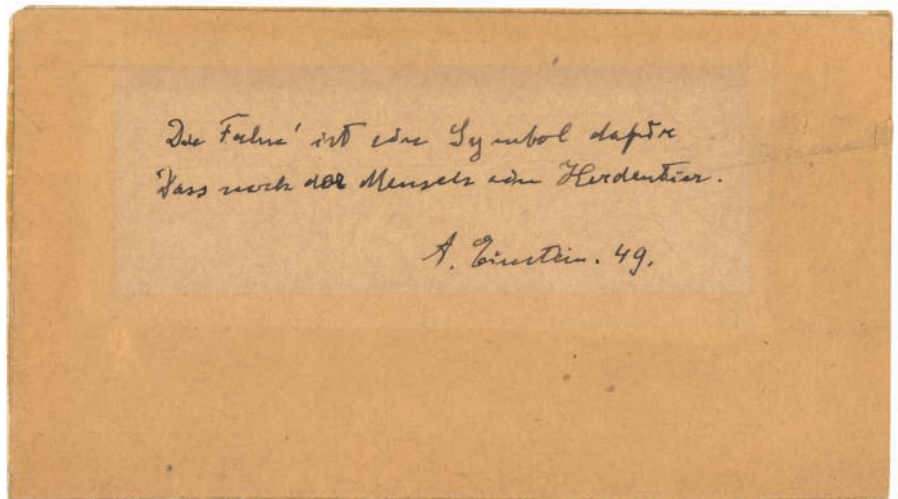 Die Fahn' ist ein Symbol dafür
Dass noch der Mensch ein Herdentier.
A. Einstein. 49.